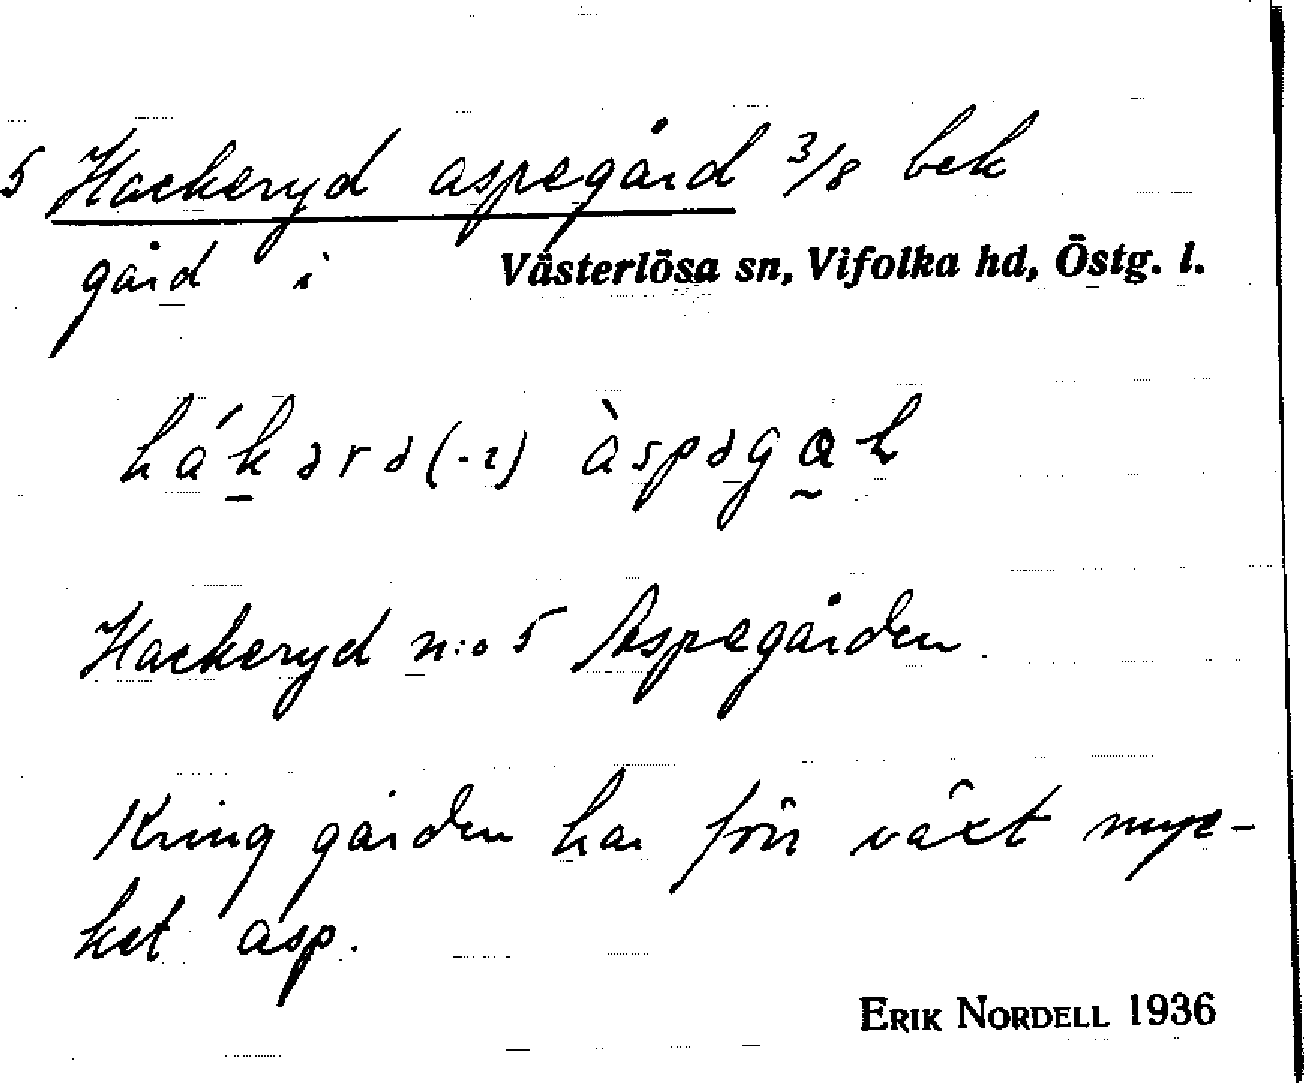 5 Hackeryd aspegård 3/8 bek
gård i Västerlösa sn, Vifolka hd, Östg. l.
hák̲ərə(-ɩ) àspəga̰h
Hackeryd n:o 5 Aspegården.
Kring gården har förr växt myc-
ket asp.
ERIK NORDELL 1936